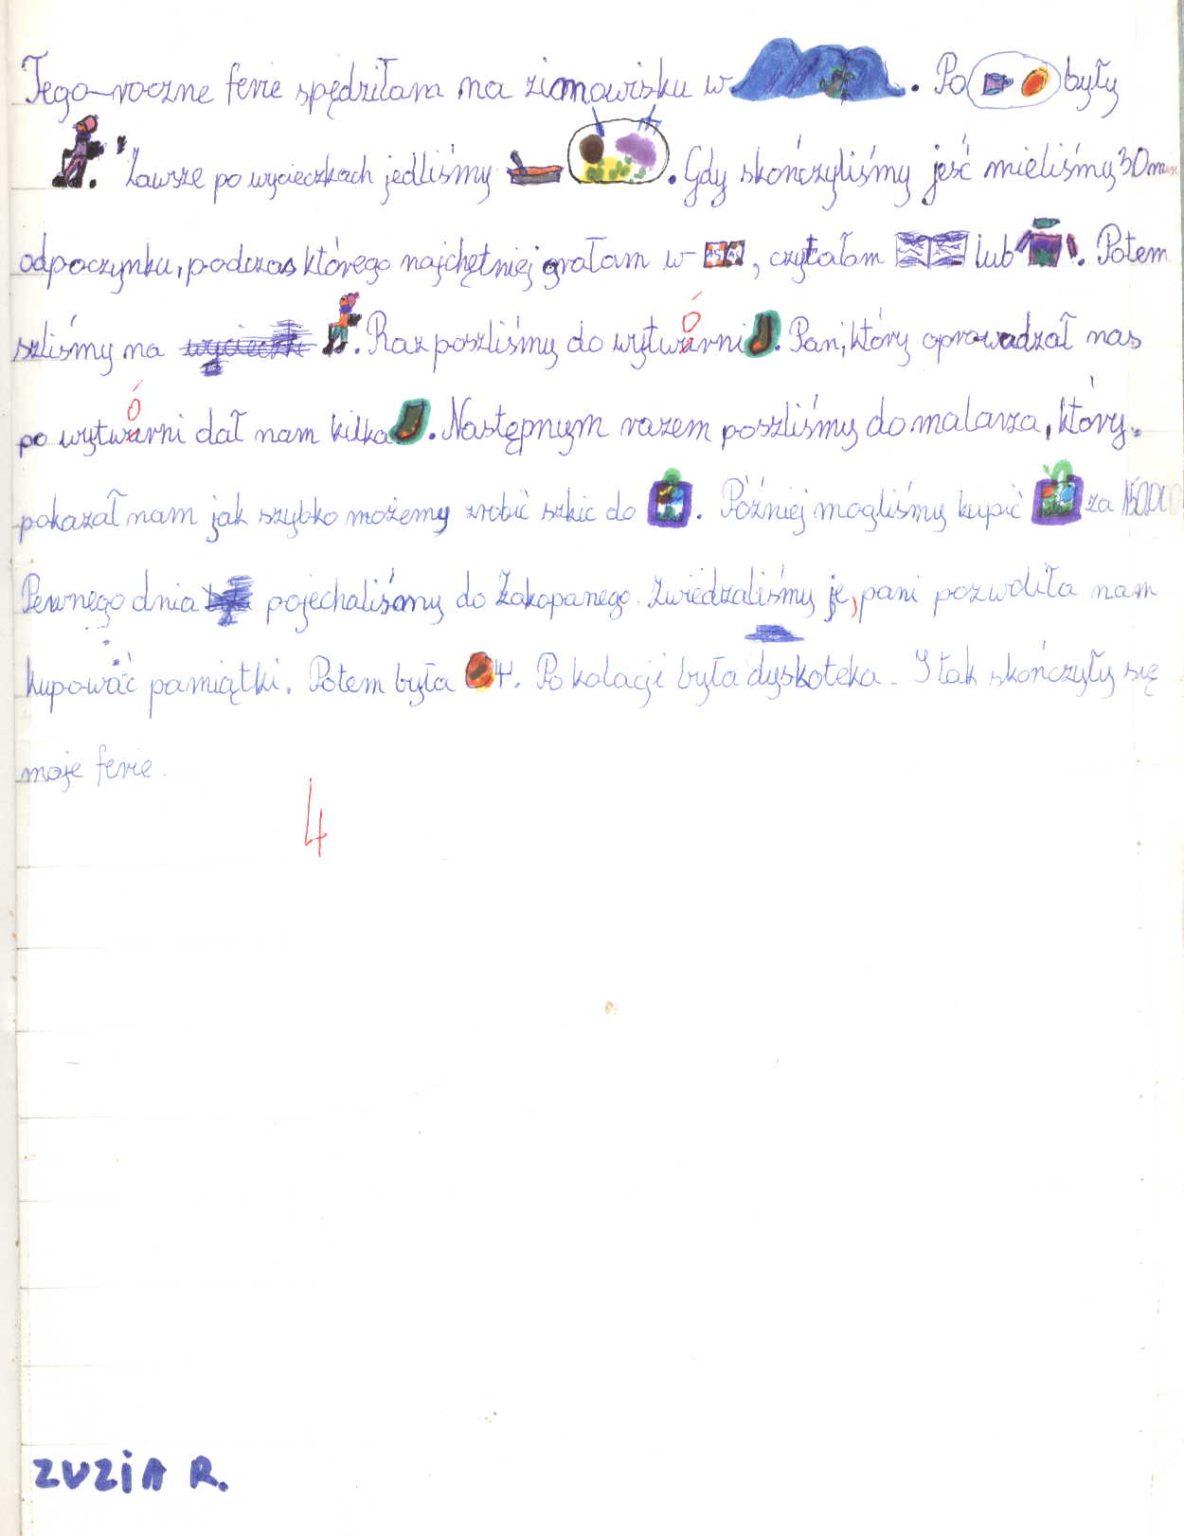 Tego-roczne ferie spędziłam na zimowisku w . Po były
. Zawsze po wycieczkach jedliśmy . Gdy skończyliśmy jeść mieliśmy 30 min
odpoczynku, podczas którego najchętniej grałam w , czytałam lub . Potem
szliśmy na . Raz poszliśmy do wytwórni . Pan, który oprowadzał nas
po wytwórni dał nam kilka . Następnym razem poszliśmy do malarza, który
pokazał nam jak szybko możemy zrobić szkic do . Później mogliśmy kupić za
Pewnego dnia pojechaliśmy do Zakopanego. Zwiedzaliśmy je, pani pozwoliła nam
kupować pamiątki. Potem była 4. Po kolacji była dyskoteka. I tak skończyły się
moje ferie.
4
ZUZIA R.